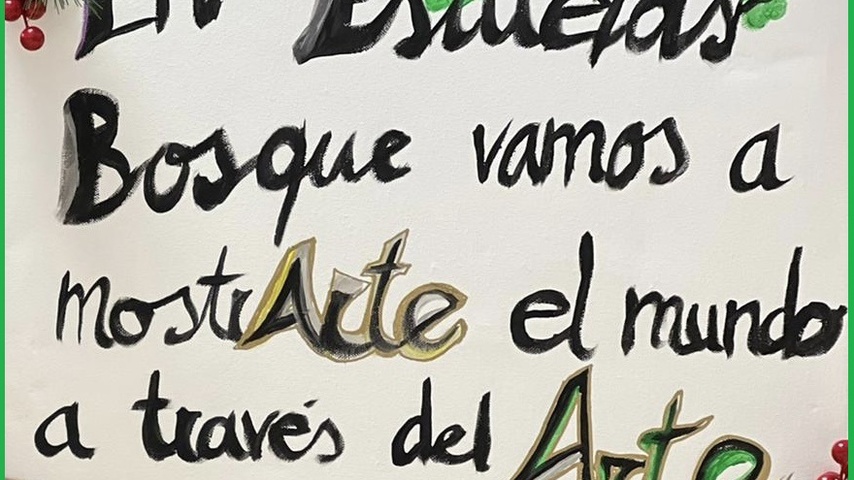 En Escuelas
Bosque vamos a
mostrArte el mundo
a través del Arte